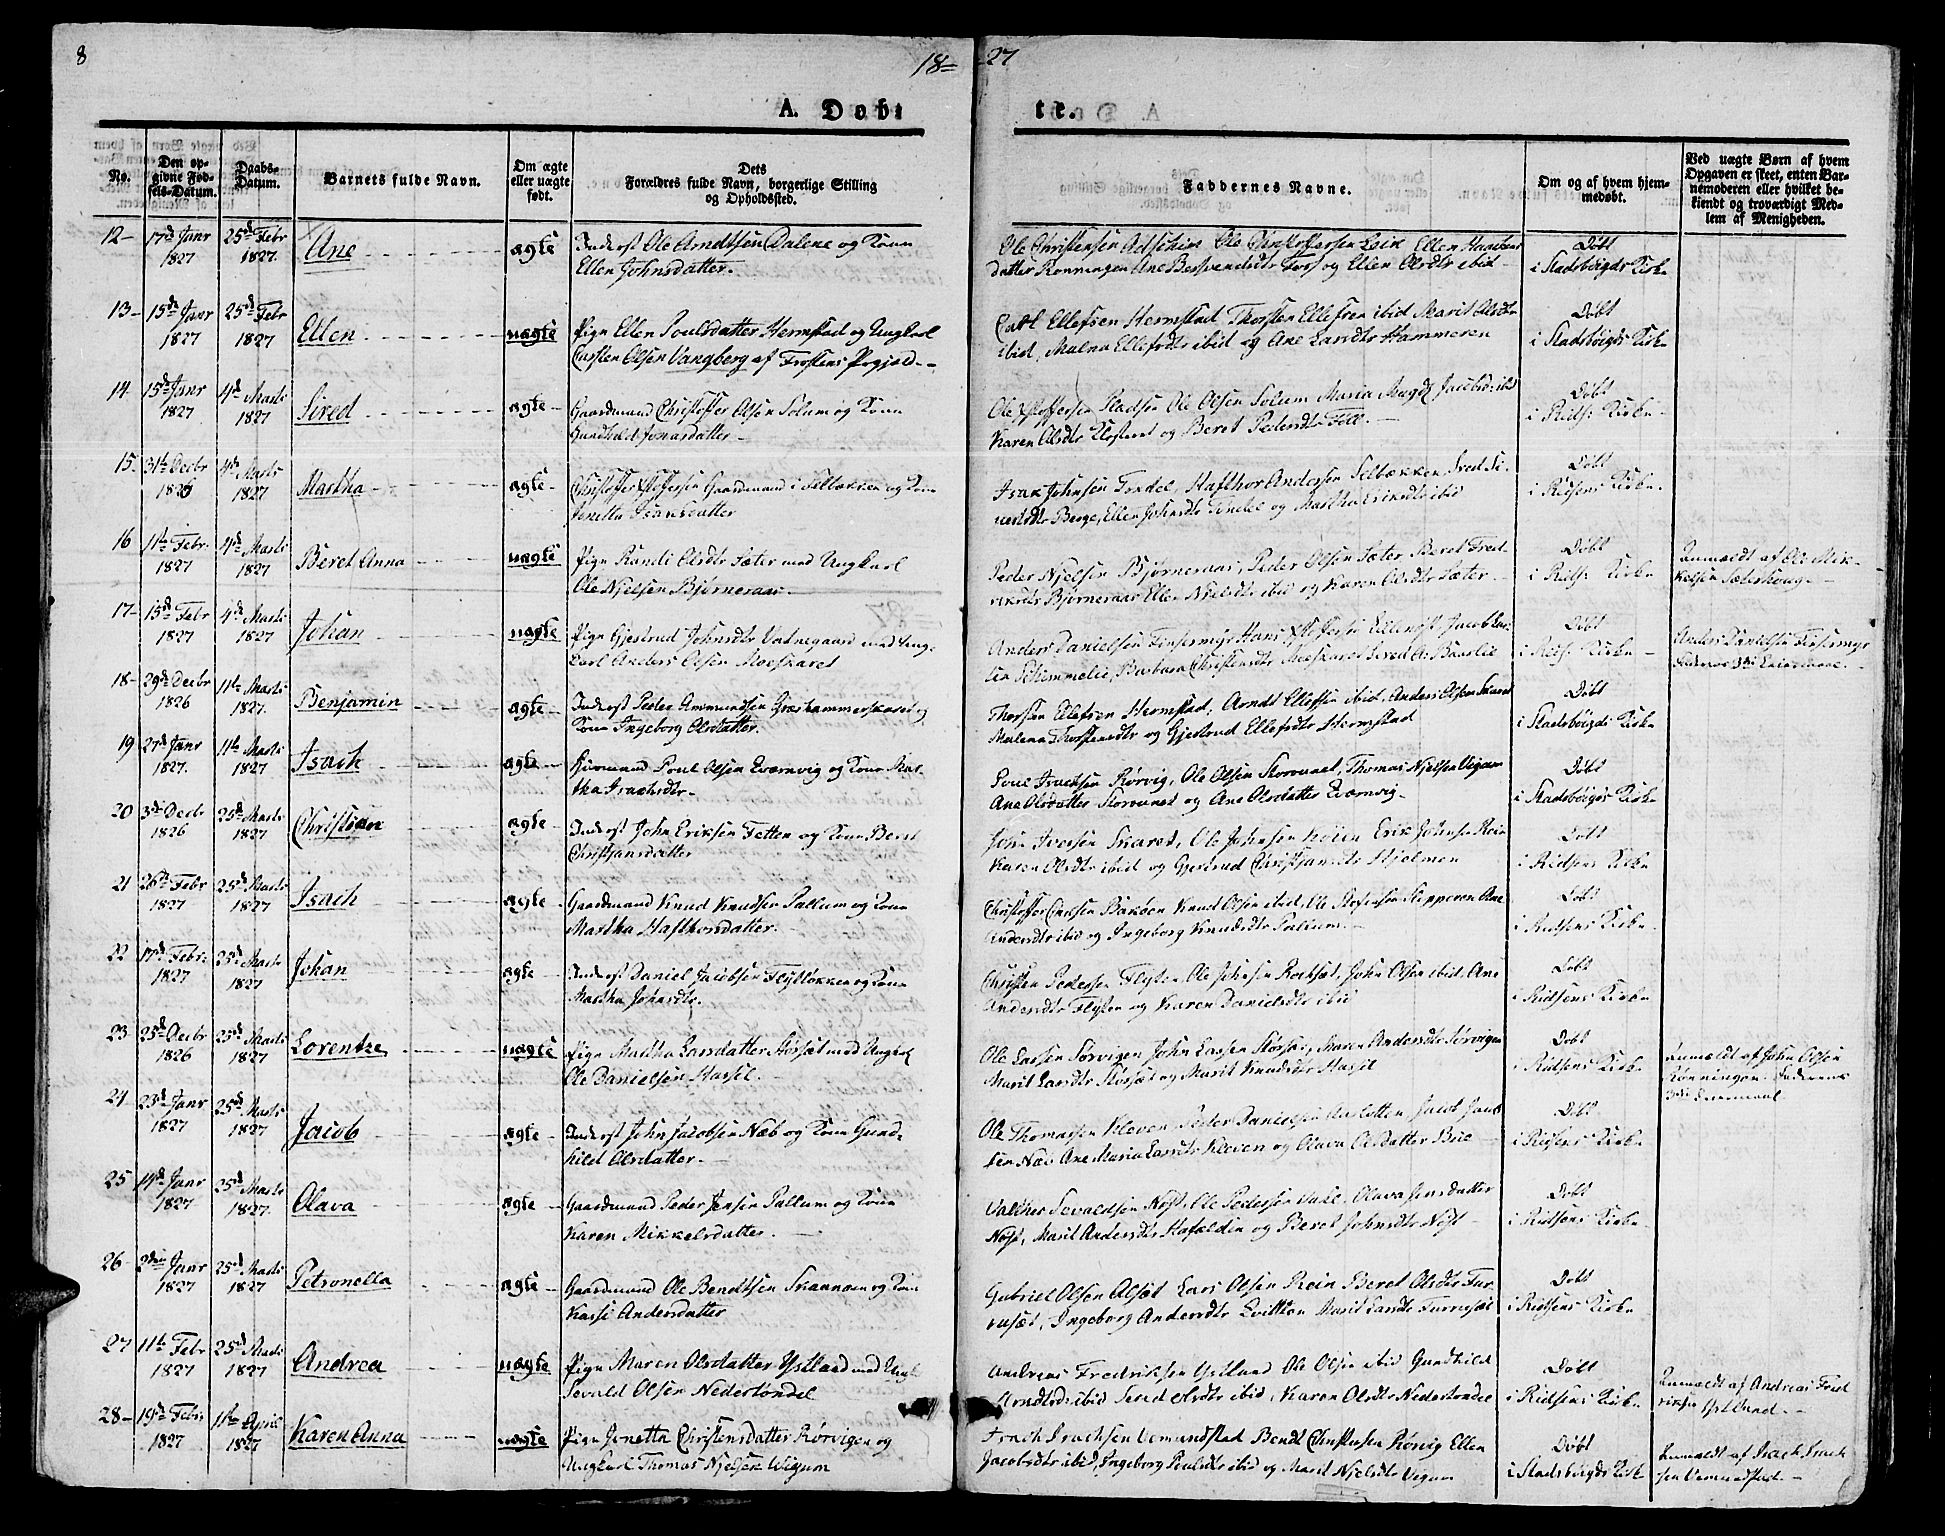 8
18 27
A. Døbte.
No.
Den opgivne Fødsels-Datum.
Daabs-Datum.
Barnets fulde Navn.
Om ægte eller uægte født.
Dets Forældres fulde Navn, borgerlige Stilling og Opholdssted.
Faddernes Navne.
Om og af hvem hjemmedøbt.
Ved uægte Børn af hvem Opgaven er skeet, enten Barnemoderen eller hvilket bekiendt og troværdigt Medlem af Menigheden.
12 17de Janr 1827 25de Febr 1827 Ane ægte Inderst Ole Arndtsen Dalene og Kone
Ellen Johnsdatter.
Døbt
i Stadsbøigds Kirke
13 15de Janr 1827 25de Febr 1827 Ellen uægte Pige Ellen Poulsdatter Hermstad og Ungkarl
Carsten Olsen Vangberg af Frostens Prgjæld
Ellefsen Hermstad, Thorsten Ellefsen ibid Marit Olsdtr
ibid, Malena Ellefsdtr ibid og Ane Larsdtr Hammeren
Døbt
i Stadsbøigds Kirke
14 15de Janr 1827 4de Marts 1827 Sired ægte Gaardmand Christoffer Olsen Solum og Kone
Gundhild Jonasdatter
Ole Olsen Solum Maria Magd. Jacobsd: ibid
Karen Olsdtr Klosteret og Beret Pedersdtr Foll.
Døbt
i Ridts: Kirke
15 31te Decbr 1826 4de Marts 1827 Martha ægte Christoffer Xstoffersen Gaardmand i Selbækken og Kone
Jonetta Isaksdatter
Isak Johnsen Tondel, Hafthor Andersen Selbækken
Berge, Ellen Johnsdtr Tondel og Martha Eriksdtr ibid
Døbt
i Ridsens Kirke
16 11te Febr. 1827 4de Marts 1827 Beret Anna uægte Pige Randi Olsdtr Sæter med Ungkarl
Ole Njelsen Bjørneraas
Peder Njelsen Bjørneraas, Peder Olsen Sæter Beret Fred-
riksdtr Bjørneraas Ellen Njelsdtr ibid og Karen Olsdtr Sæter
Døbt
i Ridts: Kirke
Anmeldt af Ole Mik-
kelsen Sæterhoug
17 15de Febr 1827 4de Marts 1827 Johan uægte Pige Gjertrud Johnsdtr Vatnegaard med Ung-
karl Anders Olsen Moeskaret
Anders Danielsen Finsermyr Hans Xstoffersen
Schimmelie, Barbara Christensdtr Moeskaret
Døbt
i Ridts: Kirke
Anders Danielsen Finsermyr
Faderens 3die Leiermaal
18 29de Decbr 1826 11te Marts 1827. Benjamin ægte Inderst Peder Ammundsen Græshammerskaret og
Kone Ingeborg Olsdatter.
Thorsten Ellefsen Hermstad, Arndt Ellefsen ibid. Anders Olsen Skaret
Malena Thorstensdtr og Gjertrud Ellefsdtr Hermstad
Døbt
i Stadsbøigds Kirke
19 27de Janr 1827. 11te Marts 1827 Isach ægte Huusmand Poul Olsen Qvernvig og Kone Mar-
tha Isachsdtr
Poul Isachsen Rørvig, Ole Olsen Storvunet, Thomas Njelsen Vigum
Ane Olsdatter Storvunet og Ane Olsdatter Qvernvig
Døbt
i Stadsbøigds Kirke
20 3de Decbr 1826 25de Marts 1827 Christian ægte Inderst John Eriksen Fetten og Kone Beret
Christjansdatter
John Iversen Skaret, Ole Johnsen Erik Johnsen Rein
Karen Olsdtr ibid og Gjertrud Christjansdtr Hjelmen
Døbt
i Ridsens Kirke
21 26de Febr 1827 25de Marts 1827 Isach ægte Gaardmand Knud Knudsen Pallum og Kone
Martha Hafthorsdatter.
Knud Olsen ibid, Ane
Andersdtr ibid og Ingeborg Knudsdtr Pallum
Døbt
i Ridsens Kirke
22 17de Febr. 1827 25de Marts 1827 Johan ægte Inderst Daniel Jacobsen Flytløkken og Kone
Martha Johnsdtr.
Christen Pedersen Flyten Ole Johnsen Rockset, John Olsen ibid, Ane
Andersdtr Flyten og Karen Danielsdtr ibid
Døbt
i Ridsens Kirke
23 25de Decbr 1826 25de Marts 1827 Lorentze uægte Pige Martha Larsdatter Størsæt med Ungkarl
Ole Danielsen Hassel.
Ole Larsen Sørvigen John Larsen Størsæt, Maren Andersdtr Sørvigen
Marit Larsdtr Størsæt og Marit Knudsdtr Hassel
Døbt
i Ridsens Kirke
Anmeldt af John Olsen
Rønningen. Faderens
3die Leiermaal
24 23de Janr 1827 25de Marts 1827 Jacob ægte Inderst John Jacobsen Næb og Kone Gund-
hild Olsdatter.
Ole Thomasen Kleven Peder Danielsen Jacob Jacob-
sen Næb Ane Maria Larsdtr Kleven og Olava Olsdatter Bue
Døbt
i Ridsens Kirke
25 14de Janr 1827 25de Marts 1827. Olava ægte Gaardmand Peder Jensen Pallum og Kone
Karen Mikkelsdatter.
Valther Sevaldsen Nøst, Ole Pedersen Olava Jensdatter
Nøst, Marit Andersdtr og Beret Johnsdtr Nøst
Døbt
i Ridsens Kirke
26 2den Janr 1827 25de Marts 1827 Petronella ægte Gaardmand Ole Bendtsen og Kone
Kassi Andersdatter
Gabriel Olsen Alsæt Lars Olsen Rein Beret Olsdtr Fur-
rusæt, Ingeborg Andersdtr Marit Larsdtr Furrusæt
Døbt
i Ridsens Kirke
27 11te Febr 1827 25de Marts 1827 Andrea uægte Pige Maren Olsdatter Ystland med Ungk.
Sevald Olsen Nedertondel
Andreas Fredriksen Ystland Ole Olsen ibid Gundhild
Arndtsdtr ibid Sered Olsdtr ibid, Karen Olsdtr Nedertondel
Døbt
i Ridsens Kirke
Anmeldt af Andreas Fred
riksen Ystland.
28 19de Febr 1827 11te April 1827 Karen Anna uægte Pige Jonetta Christensdatter Rørvigen og
Ungkarl Thomas Njelsen Wigum
Isach Isachsen Vemundstad Bendt Christensen Rørvig Ellen
Jacobsdtr ibid, Ingeborg Poulsdtr ibid og Marit Njelsdtr Vigum
Døbt
i Stadsbøigds Kirke
Anmeldt af Isach Isach
sen Vemundstad